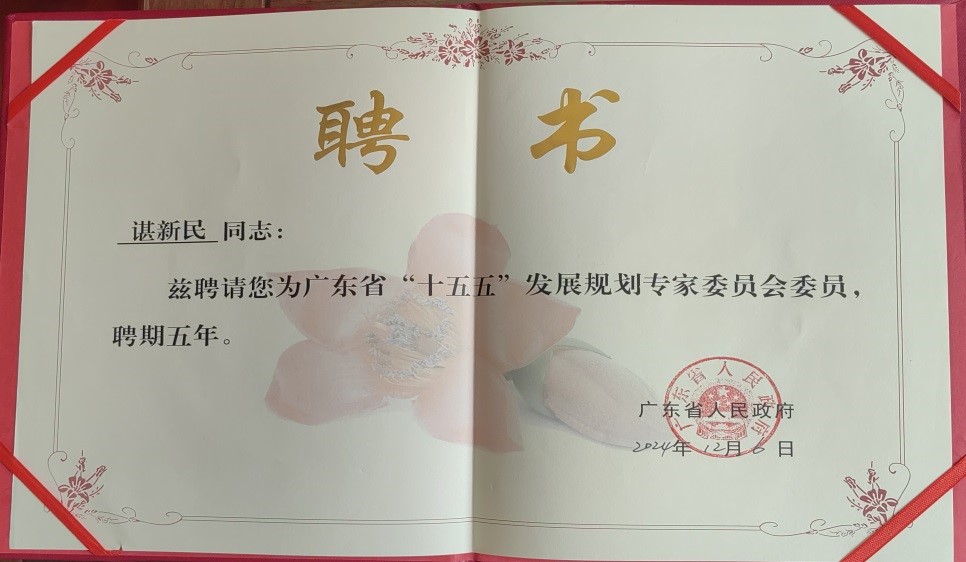 聘 书
谌新民 同志：
兹聘请您为广东省“十五五”发展规划专家委员会委员，
聘期五年。
广东省人民政府
广东省人民政府
2024年12月6日